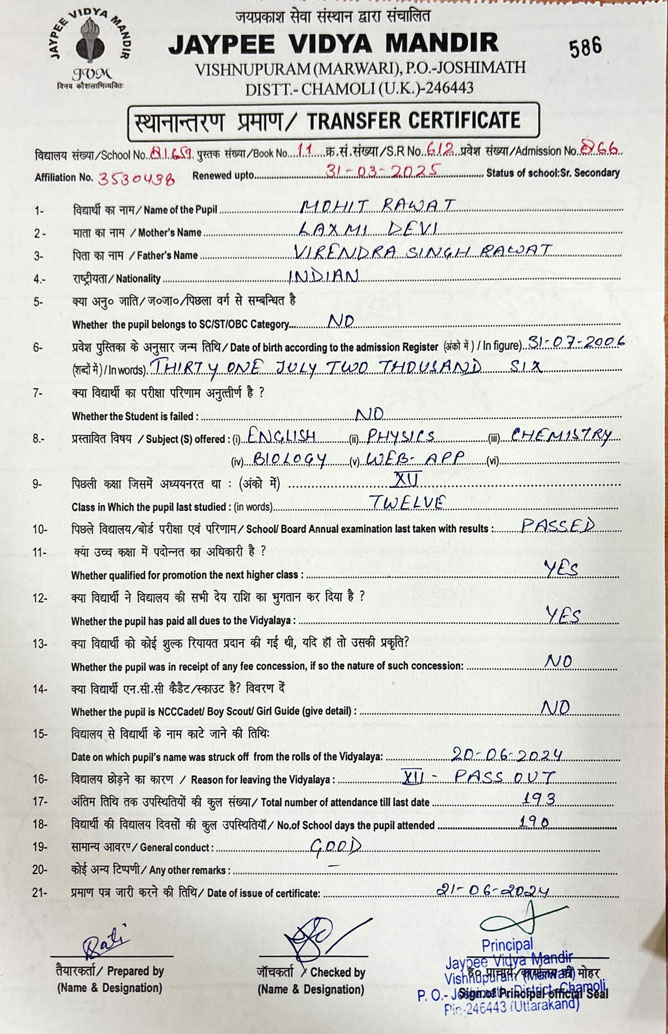 जयप्रकाश सेवा संस्थान द्वारा संचालित
JAYPEE VIDYA MANDIR
JVM
विनय कौशलाभिव्यक्तिः
JAYPEE VIDYA MANDIR 586
VISHNUPURAM (MARWARI), P.O.-JOSHIMATH
DISTT.- CHAMOLI (U.K.)-246443
स्थानान्तरण प्रमाण/ TRANSFER CERTIFICATE
विद्यालय संख्या/School No. 81659 पुस्तक संख्या/Book No. 11 क्र.सं.संख्या/S.R No. 612 प्रवेश संख्या/Admission No. 866
Affiliation No. 3530438 Renewed upto 31-03-2025 Status of school:Sr. Secondary
1- विद्यार्थी का नाम/Name of the Pupil MOHIT RAWAT
2- माता का नाम / Mother's Name LAXMI DEVI
3- पिता का नाम / Father's Name VIRENDRA SINGH RAWAT
4.- राष्ट्रीयता/ Nationality INDIAN
5- क्या अनु० जाति/ ज०जा०/पिछला वर्ग से सम्बन्धित है
Whether the pupil belongs to SC/ST/OBC Category... NO
6- प्रवेश पुस्तिका के अनुसार जन्म तिथि/ Date of birth according to the admission Register (अंको में) / In figure). 31-07-2006
(शब्दों में)/In words). THIRTY ONE JULY TWO THOUSAND SIX
7- क्या विद्यार्थी का परीक्षा परिणाम अनुत्तीर्ण है ?
Whether the Student is failed : NO
8.- प्रस्तावित विषय / Subject (S) offered : (i) ENGLISH (ii) PHYSICS (iii) CHEMISTRY
(iv) BIOLOGY (v) WEB-APP (vi)
9- पिछली कक्षा जिसमें अध्ययनरत था : (अंको में) XII
Class in Which the pupil last studied : (in words) TWELVE
10- पिछले विद्यालय/बोर्ड परीक्षा एवं परिणाम/ School/ Board Annual examination last taken with results : PASSED
11- क्या उच्च कक्षा में पदोन्नत का अधिकारी है ?
Whether qualified for promotion the next higher class : YES
12- क्या विद्यार्थी ने विद्यालय की सभी देय राशि का भुगतान कर दिया है ?
Whether the pupil has paid all dues to the Vidyalaya : YES
13- क्या विद्यार्थी को कोई शुल्क रियायत प्रदान की गई थी, यदि हाँ तो उसकी प्रकृति?
Whether the pupil was in receipt of any fee concession, if so the nature of such concession: NO
14- क्या विद्यार्थी एन.सी.सी कैडैट/स्काउट है? विवरण दें
Whether the pupil is NCCCadet/ Boy Scout/ Girl Guide (give detail) : NO
15- विद्यालय से विद्यार्थी के नाम काटे जाने की तिथिः
Date on which pupil's name was struck off from the rolls of the Vidyalaya: 20-06-2024
16- विद्यालय छोड़ने का कारण / Reason for leaving the Vidyalaya : XII - PASS OUT
17- अंतिम तिथि तक उपस्थितियों की कुल संख्या/ Total number of attendance till last date 193
18- विद्यार्थी की विद्यालय दिवसों की कुल उपस्थितियाँ/ No.of School days the pupil attended 190
19- सामान्य आवरण/ General conduct : GOOD
20- कोई अन्य टिप्पणी/ Any other remarks : –
21- प्रमाण पत्र जारी करने की तिथि/ Date of issue of certificate: 21-06-2024
तैयारकर्ता/ Prepared by
(Name & Designation)
जाँचकर्ता / Checked by
(Name & Designation)
Principal
Jaypee Vidya Mandir
Vishnupuram (Marwari)
P. O.- Joshimath, District-Chamoli
Pin-246443 (Uttarakhand)
ह० प्राचार्य/कार्यालय की मोहर
Sign of Principal official Seal